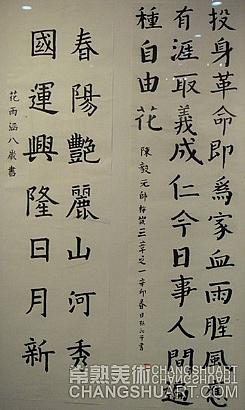 投身革命即為家血雨腥風應
有涯取義成仁今日事人間遍
種自由花
陳毅元帥梅嶺三章之一辛卯春日
春陽艷麗山河秀
國運興隆日月新
花雨涵八歲書
常熟美術 CHANGSHUART
CHANGSHUART.COM